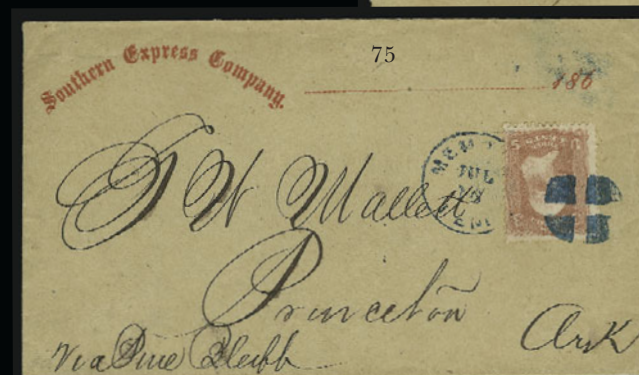 Southern Express Company.
75
186
MEM
JUL
G W Mallett
Princeton
Ark
Via Pine Bluff